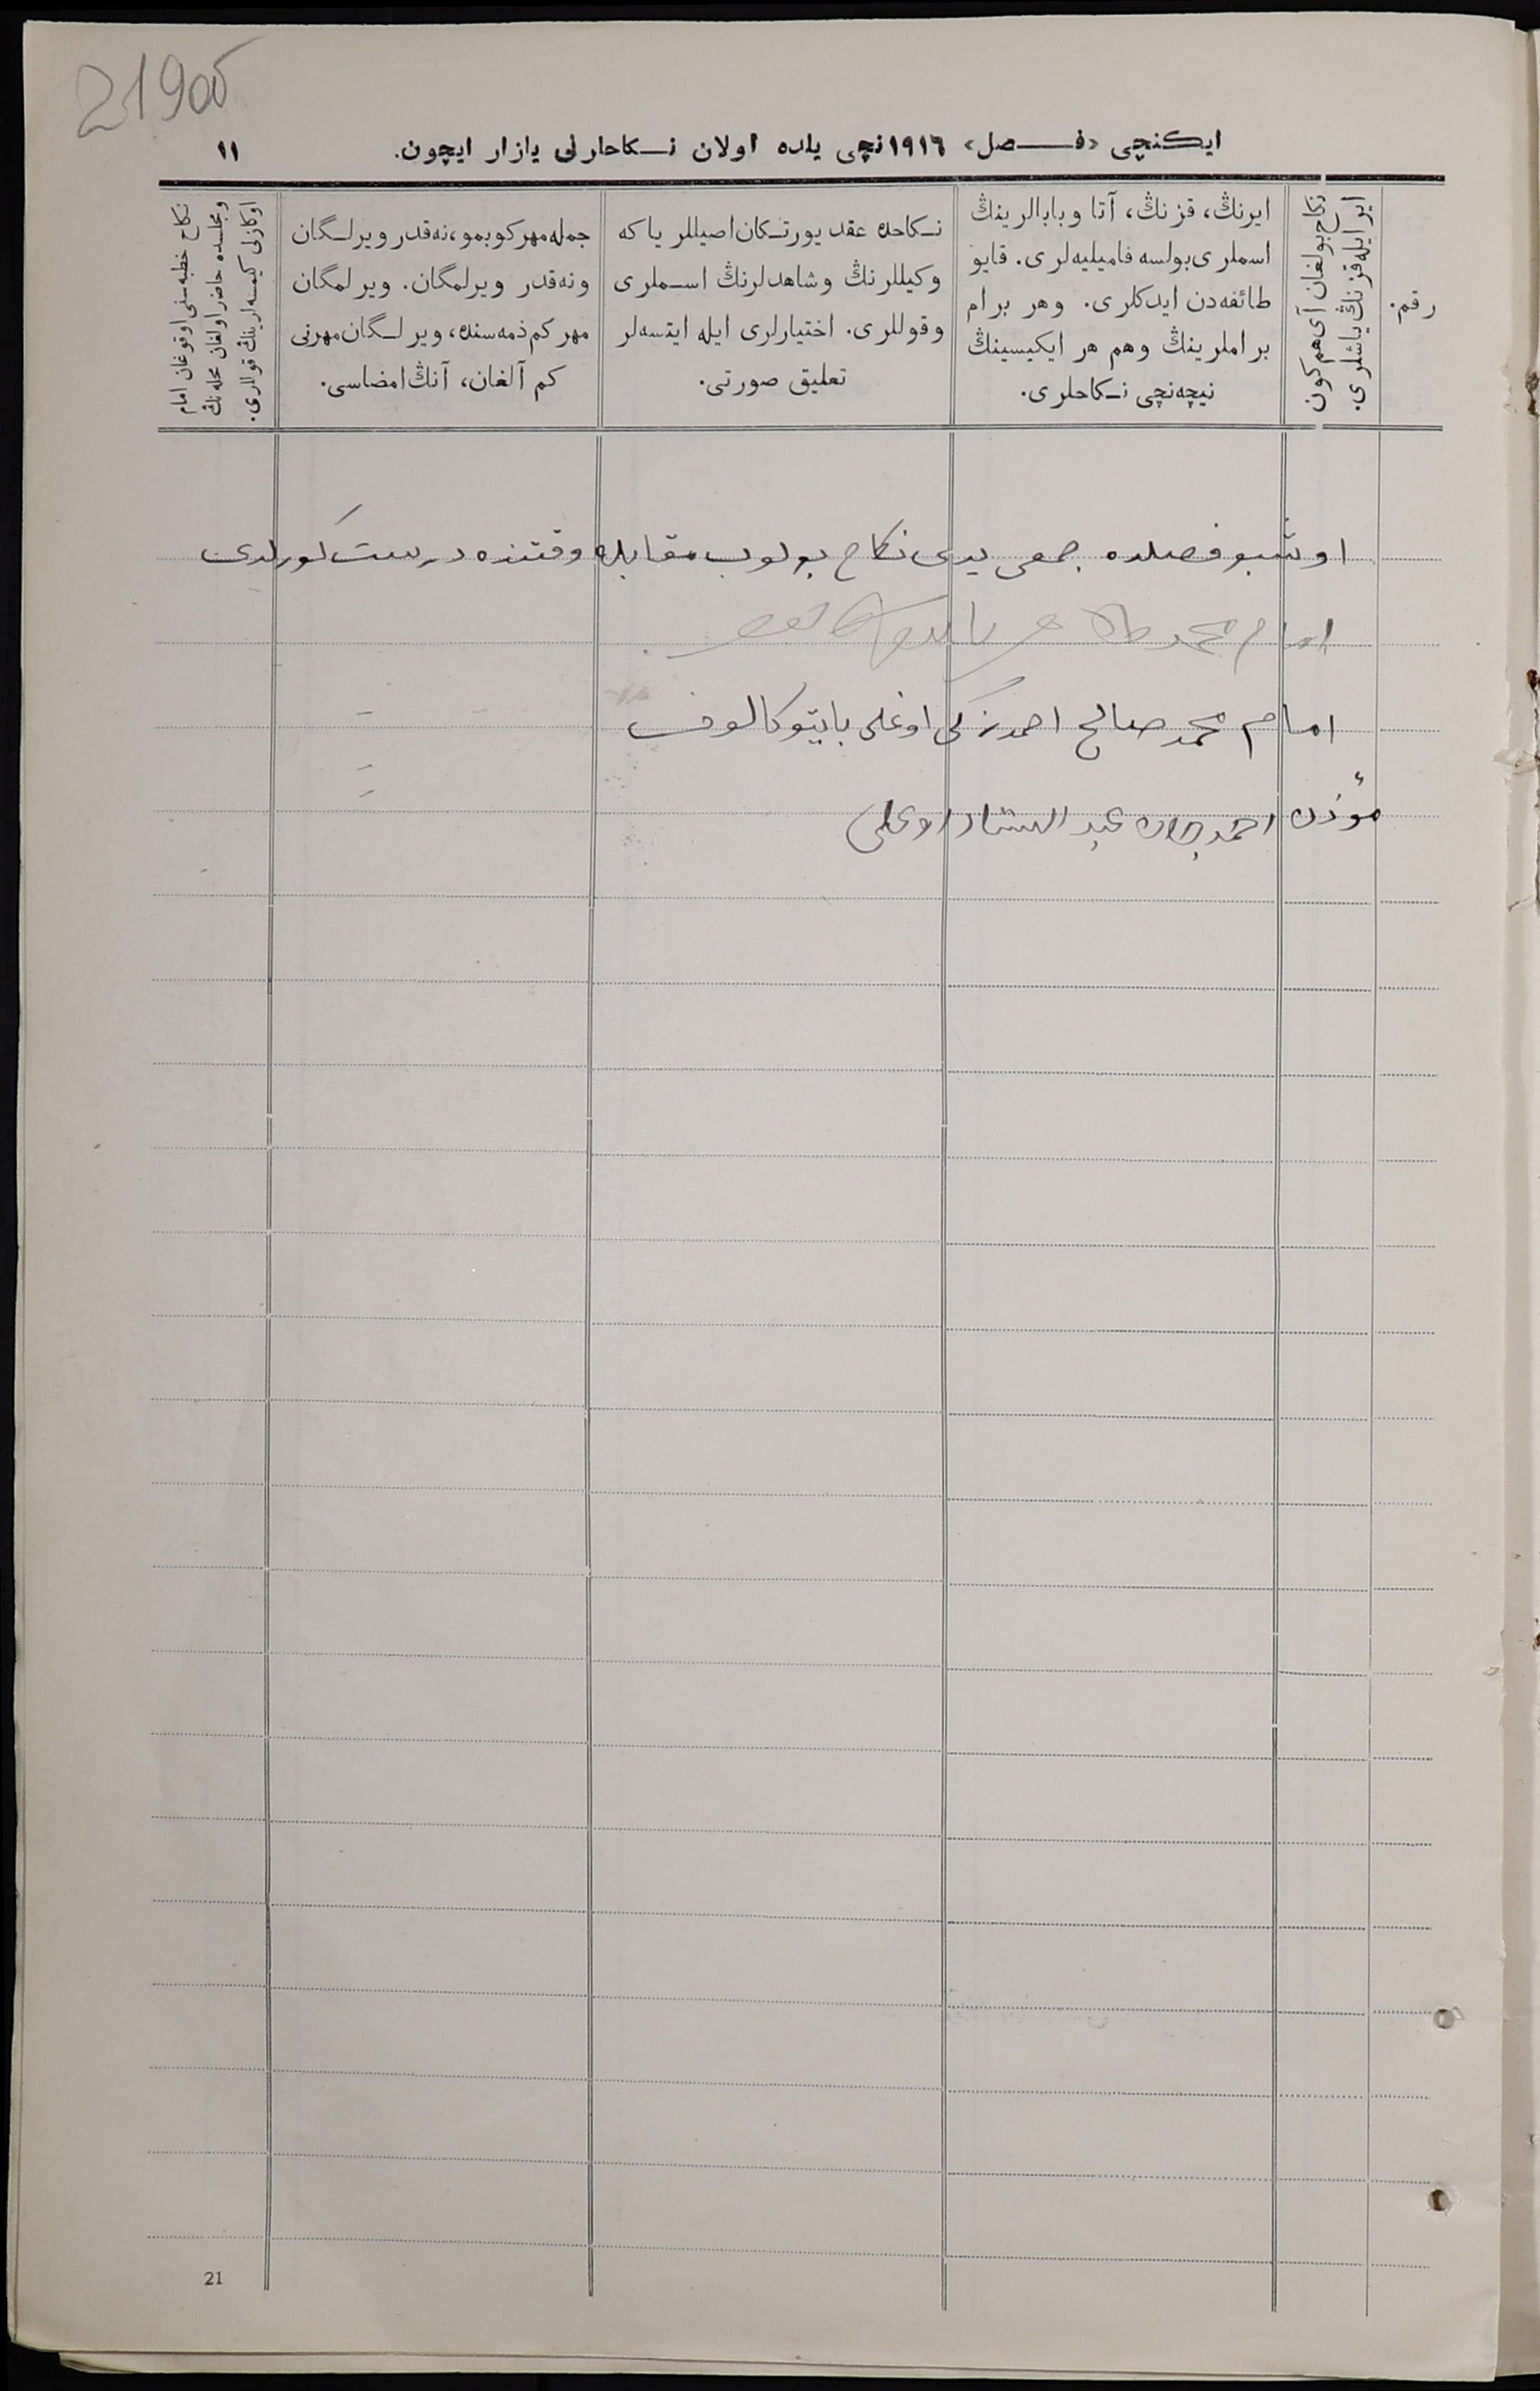 219об
ایكنچی «فـصل» ۱۹۱٦نچی یلده اولان نـكاحلرنی یازار ایچون.
۱۱
رقم.
نكاح بولغان آی هم كون
ایر ایله قزنڭ یاشلری.
ایرنڭ، قزنڭ، آتا و بابالرینڭ
اسملری بولسه فامیلیه‌لری. قایو
طائفه‌دن ایدكلری. وهر برام
براملرینڭ وهم هر ایكیسینڭ
نیچه‌نچی نـكاحلری.
نـكاحده عقد یورتـكان اصیللر یا كه
وكیللرنڭ وشاهدلرنڭ اسـملری
وقوللری. اختیارلری ایله ایتسه‌لر
تعلیق صورتی.
جمله مهر كوبمو، نه‌قدر ویرلـگان
ونه‌قدر ویرلمگان. ویرلمگان
مهر كم ذمه‌سنده، ویرلـگان مهرنی
كم آلغان، آنڭ امضاسی.
نكاح خطبه‌سنی اوقوغان امام
ومجلسده حاضر اولغان محله‌نڭ
اوكازلی كیمسه‌لرینڭ قوللری.
اوشبو فصلده جمعی یدی نكاح بولوب مقابله وقتنده درست كورلدی
امام محمد
امام محمد صالح احمدزكی اوغلی بایتوكالوف
مؤذن احمدجان عبدالستار اوغلی
21